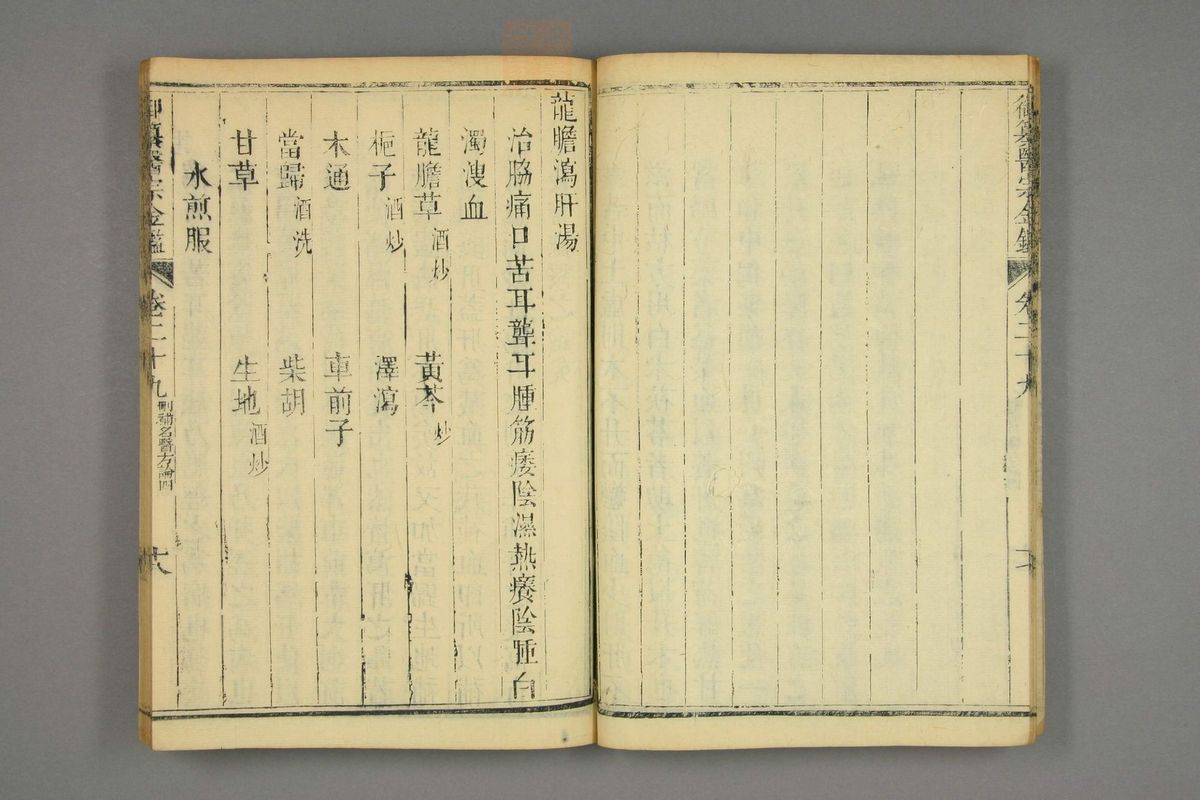 御纂醫宗金鑑 卷二十九
龍膽瀉肝湯
治脇痛口苦耳聾耳腫筋痿陰濕熱癢陰腫白
濁溲血
龍膽草酒炒 黃芩炒
梔子酒炒 澤瀉
木通 車前子
當歸酒洗 柴胡
甘草 生地酒炒
水煎服
御纂醫宗金鑑 卷二十九 刪補名醫方論四